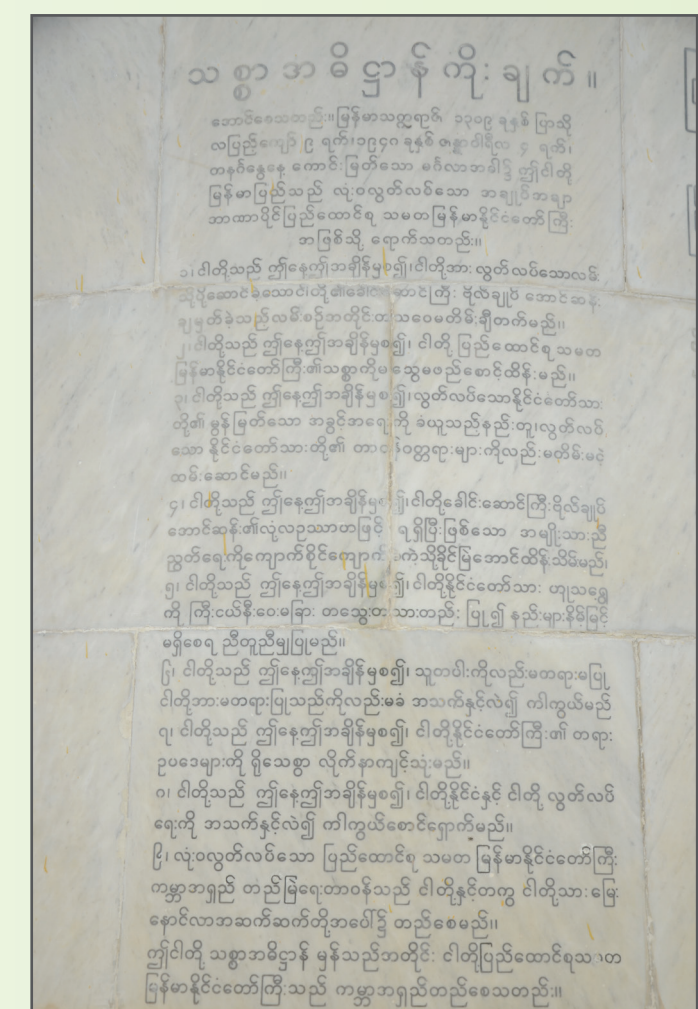 သစ္စာအဓိဋ္ဌာန်ကိုးချက်။
အောင်စေသတည်း။မြန်မာသက္ကရာဇ် ၁၃၀၉ ခုနှစ် ပြာသို
လပြည့်ကျော် ၉ ရက်၊၁၉၄၈ ခုနှစ် ဇန္နဝါရီလ ၄ ရက်၊
တနင်္ဂနွေနေ့ ကောင်းမြတ်သော မင်္ဂလာအခါ၌ ဤငါတို
မြန်မာပြည်သည် လုံးဝလွတ်လပ်သော အချုပ်အချာ
အာဏာပိုင်ပြည်ထောင်စု သမတမြန်မာနိုင်ငံတော်ကြီး
အဖြစ်သို့ ရောက်သတည်း။
၁၊ ငါတို့သည် ဤနေ့ဤအချိန်မှစ၍၊ငါတို့အား လွတ်လပ်သောလမ်း
သို့ပို့ဆောင်ခဲ့သောငါတို့၏ခေါင်းဆောင်ကြီး ဗိုလ်ချုပ် အောင်ဆန်း
ချမှတ်ခဲ့သည့်လမ်းစဉ်အတိုင်းတသဝေမတိမ်းချီတက်မည်။
၂၊ ငါတို့သည် ဤနေ့ဤအချိန်မှစ၍၊ ငါတို့ ပြည်ထောင်စုသမတ
မြန်မာနိုင်ငံတော်ကြီး၏သစ္စာကိုမသွေမဖည်စောင့်ထိန်းမည်။
၃၊ ငါတို့သည် ဤနေ့ဤအချိန်မှစ၍၊လွတ်လပ်သောနိုင်ငံတော်သား
တို့၏ မွန်မြတ်သော အခွင့်အရေးကို ခံယူသည်နည်းတူ၊လွတ်လပ်
သော နိုင်ငံတော်သားတို့၏ တာဝန်ဝတ္တရားများကိုလည်းမတိမ်းမစဲ
ထမ်းဆောင်မည်။
၄၊ ငါတို့သည် ဤနေ့ဤအချိန်မှစ၍၊ငါတို့ခေါင်းဆောင်ကြီးဗိုလ်ချုပ်
အောင်ဆန်း၏လုံ့လဥဿာဟဖြင့် ရရှိပြီးဖြစ်သော အမျိုးသားညီ
ညွတ်ရေးကိုကျောက်စိုင်ကျောက် ကဲသို့ခိုင်မြဲအောင်ထိန်းသိမ်းမည်၊
၅၊ ငါတို့သည် ဤနေ့ဤအချိန်မှစ၍၊ငါတို့နိုင်ငံတော်သား ဟူသရွေ့
ကို ကြီးငယ်နီးဝေးမခြား တသွေးတသားတည်း ပြု၍ နည်းများနိမ့်မြင့်
မရှိစေရ ညီတူညီမျှပြုမည်။
၆၊ ငါတို့သည် ဤနေ့ဤအချိန်မှစ၍၊ သူတပါးကိုလည်းမတရားမပြု
ငါတို့အားမတရားပြုသည်ကိုလည်းမခံ အသက်နှင့်လဲ၍ ကာကွယ်မည်
၇၊ ငါတို့သည် ဤနေ့ဤအချိန်မှစ၍၊ ငါတို့နိုင်ငံတော်ကြီး၏ တရား
ဥပဒေများကို ရိုသေစွာ လိုက်နာကျင့်သုံးမည်။
၈၊ ငါတို့သည် ဤနေ့ဤအချိန်မှစ၍၊ ငါတို့နိုင်ငံနှင့် ငါတို့ လွတ်လပ်
ရေးကို အသက်နှင့်လဲ၍ ကာကွယ်စောင့်ရှောက်မည်။
၉၊ လုံးဝလွတ်လပ်သော ပြည်ထောင်စု သမတ မြန်မာနိုင်ငံတော်ကြီး
ကမ္ဘာအရှည် တည်မြဲရေးတာဝန်သည် ငါတို့နှင့်တကွ ငါတို့သား မြေး
နောင်လာအဆက်ဆက်တို့အပေါ်၌ တည်စေမည်။
ဤငါတို့ သစ္စာအဓိဋ္ဌာန် မှန်သည့်အတိုင်း ငါတို့ပြည်ထောင်စုသမတ
မြန်မာနိုင်ငံတော်ကြီးသည် ကမ္ဘာအရှည်တည်စေသတည်း။